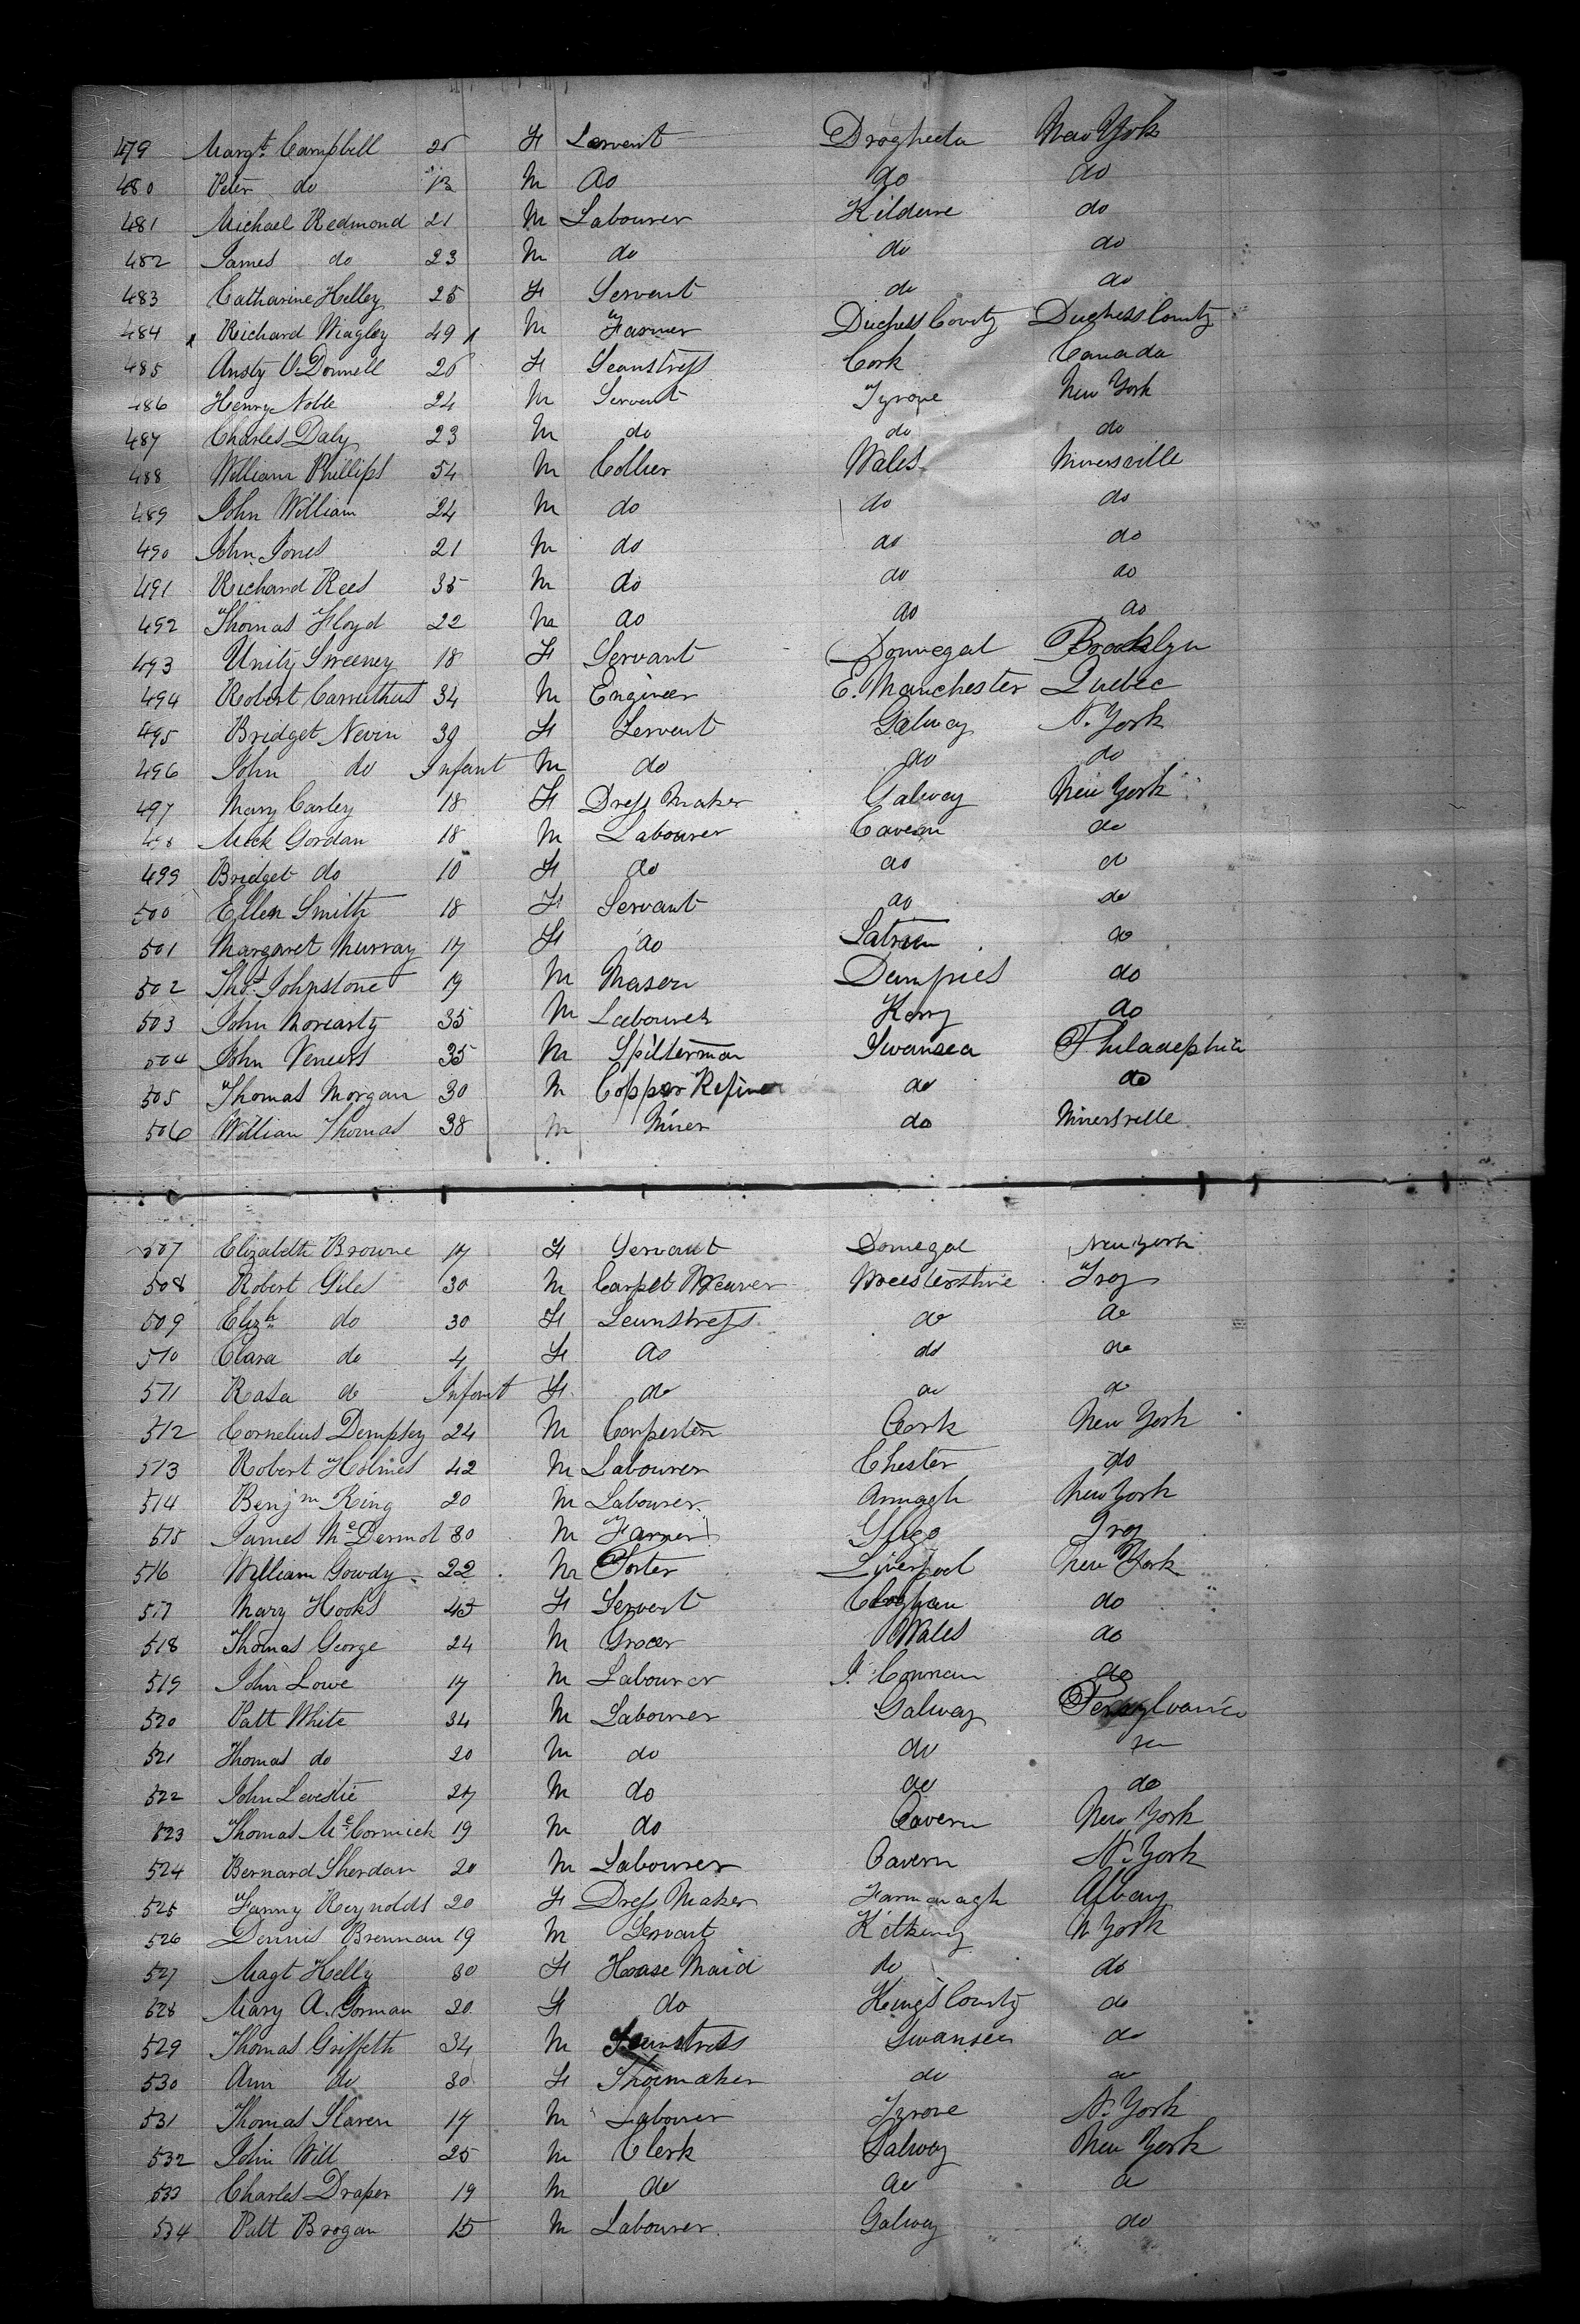 479 Margt. Campbell 25 F Servent Drogheda New York
480 Peter do 13 M do do do
481 Michael Redmond 21 M Labourer Kildare do
482 James do 23 M do do do
483 Catharine Kelley 25 F Servent do do
484 Richard Wiagley 49 M Farmer Duchess County Duchess County
485 Ansty O'Donnell 26 F Seamstress Cork Canada
486 Henry Noble 24 M Servent Tyrone New York
487 Charles Daly 23 M do do do
488 William Phillips 54 M Collier Wales Minersville
489 John William 24 M do do do
490 John Jones 21 M do do do
491 Richard Rees 35 M do do do
492 Thomas Floyd 22 M do do do
493 Unity Sweeney 18 F Servant Donnegal Brooklyn
494 Robert Carruthers 34 M Engineer E. Manchester Quebec
495 Bridget Nevin 39 F Servent Galway N. York
496 John do Infant M do do do
497 Mary Carley 18 F Dress Maker Galway New York
Mick Gordan 18 M Labourer Cavean do
499 Bridget do 10 F do do do
500 Ellen Smith 18 F Servant do do
501 Margaret Murray 17 F do do
502 Thos. Johnstone 19 M Mason Dumfries do
503 John Moriarty 35 M Labourer Kerry do
504 John 35 M Spilterman Swansea Philadephia
505 Thomas Morgan 30 M Copper Refiner do do
506 William Thomas 38 M Miner do Minersville
507 Elizabeth Browne 17 F Servant Donegal New York
508 Robert Giles 30 M Carpet Weaver Worcestershire Troy
509 Elizh. do 30 F Seamstress do do
510 Clara do 4 F do do do
511 Rosa do Infant F do do do
512 Cornelius Dempsey 24 M Carpenter Cork New York
513 Robert Holmes 42 M Labourer Chester do
514 Benjm King 20 M Labourer Armagh New York
515 James McDermot 30 M Farmer Sligo Troy
516 William Gowdy 22 M Porter Liverpool New York
517 Mary Hooks 45 F Servent Cloghan do
518 Thomas George 24 M Grocer Wales do
519 John Lowe 17 M Labourer do
520 Patt White 34 M Labourer Galway Pensylvania
521 Thomas do 20 M do do
522 John Levestie 27 M do do do
523 Thomas McCormick 19 M do Cavern New York
524 Bernard Sherdan 20 M Labourer Cavern N. York
525 Fanny Reynolds 20 F Dress Maker Farmanagh Albany
526 Dennis Brennan 19 M Servant Kilkenny N York
527 Magt Kelly 30 F House Maid do do
528 Mary A. Gorman 20 F do Kings County do
529 Thomas Griffeth 34 M Seamstress Swansea do
530 Ann do 30 F Shoemaker do do
531 Thomas Slaven 17 M Labourer Tyrone N. York
532 John Will 25 M Clerk Galway New York
533 Charles Draper 19 M do do do
534 Patt Brogan 15 M Labourer Galway do